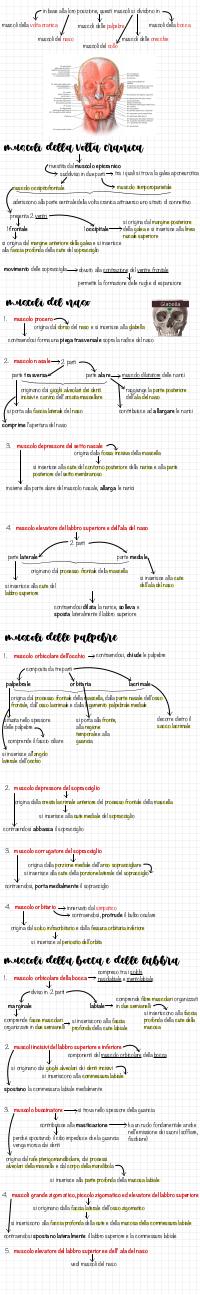 in base alla loro posizione, questi muscoli si dividono in
muscoli della volta cranica
muscoli delle palpebre
muscoli della bocca
muscoli del naso
muscoli delle orecchie
muscoli del collo
muscoli della volta cranica
rivestita dal muscolo epicranico
suddiviso in due parti
tra i quali si trova la galea aponeurotica
muscolo occipitofrontale
muscolo temporoparietale
aderiscono alla parte centrale della volta cranica attraverso uno strato di connettivo
presenta 2 ventri
il frontale
l'occipitale
si origina dal margine posteriore della galea e si inserisce alla linea nucale superiore
si origina dal margine anteriore della galea e si inserisce
alla fascia profonda della cute del sopracciglio
movimento delle sopracciglia
dovuti alla contrazione del ventre frontale
permette la formazione delle rughe di espansione
muscoli del naso
Glabella
1. muscolo procero
origina dal dorso del naso e si inserisce alla glabella
contraendosi forma una piega trasversale sopra la radice del naso
2. muscolo nasale
2 parti
parte trasversa
parte alare
muscolo dilatatore delle narici
originano dai gioghi alveolari dei denti
incisivi e canino dell'arcata mascellare
raggiunge la parte posteriore
dell'ala del naso
si porta alla faccia laterale del naso
contribuisce ad allargare le narici
comprime l'apertura del naso
3. muscolo depressore del setto nasale
origina dalla fossa incisiva della mascella
si inserisce alla cute del contorno posteriore della narice e alla parte
posteriore del setto membranoso
insieme alla parte alare del muscolo nasale, allarga le narici
4. muscolo elevatore del labbro superiore e dell'ala del naso
2 parti
parte laterale
parte mediale
originano dal processo frontale della mascella
si inserisce alla cute del
labbro superiore
si inserisce alla cute
dell'ala del naso
contraendosi dilata la narice, solleva e
sposta lateralmente il labbro superiore
muscoli delle palpebre
1. muscolo orbicolare dell'occhio
contraendosi, chiude le palpebre
composta da tre parti
palpebrale
orbitaria
lacrimale
origina dal processo frontale della mascella, dalla parte nasale dell'osso
frontale, dall'osso lacrimale e dalla legamento palpebrale mediale
situata nello spessore
delle palpebre
si porta alla fronte,
alla regione
temporale e alla
guancia
decorre dietro il
sacco lacrimale
comprende il fascio ciliare
si inserisce all'angolo
laterale dell'occhio
2. muscolo depressore del sopracciglio
origina dalla cresta lacrimale anteriore del processo frontale della mascella
si inserisce alla cute mediale del sopracciglio
contraendosi abbassa il sopracciglio
3. muscolo corrugatore del sopracciglio
origina dalla porzione mediale dell'arco sopraccigliare
si inserisce alla cute della porzione laterale del sopracciglio
contraendosi, porta medialmente il sopracciglio
4. muscolo orbitario
innervato dal simpatico
contraendosi, protrude il bulbo oculare
origina dal solco infraorbitario e dalla fessura orbitaria inferiore
si inserisce al periostio dell'orbita
muscoli della bocca e delle labbra
1. muscolo orbicolare della bocca
compreso tra i solchi
nasolabiale e mentolabiale
diviso in 2 parti
marginale
labiale
comprende fibre muscolari organizzati
in due semianelli
comprende fasce muscolari
organizzati in due semianelli
si inseriscono alla faccia
profonda della cute labiale
si inseriscono alla faccia
profonda della cute e della
mucosa
2. muscoli incisivi del labbro superiore e inferiore
componenti del muscolo orbicolare della bocca
si originano dai gioghi alveolari dei denti incisivi
si inseriscono alla commessura labiale
spostano la commessura labiale medialmente
3. muscolo buccinatore
si trova nello spessore della guancia
contribuisce alla masticazione
ha un ruolo fondamentale anche
nell'emissione dei suoni (soffiare,
fischiare)
perchè spostando il cibo impedisce che la guancia
venga morsa dai denti
origina dal rafe pterigomandibolare, dai processi
alveolari della mascella e dal corpo della mandibola
si inserisce alla parte profonda della mucosa labiale
4. muscoli grande zigomatico, piccolo zigomatico ed elevatore del labbro superiore
si originano dalla faccia laterale dell'osso zigomatico
si inseriscono alla faccia profonda della cute e della mucosa della commessura labiale
contraendosi spostano lateralmente il labbro superiore e la commessura labiale
5. muscolo elevatore del labbro superiore e dell'ala del naso
vedi muscoli del naso